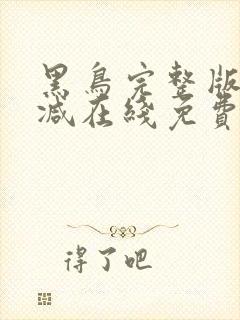 黑鳥完整版
減在綫免費
得了吧